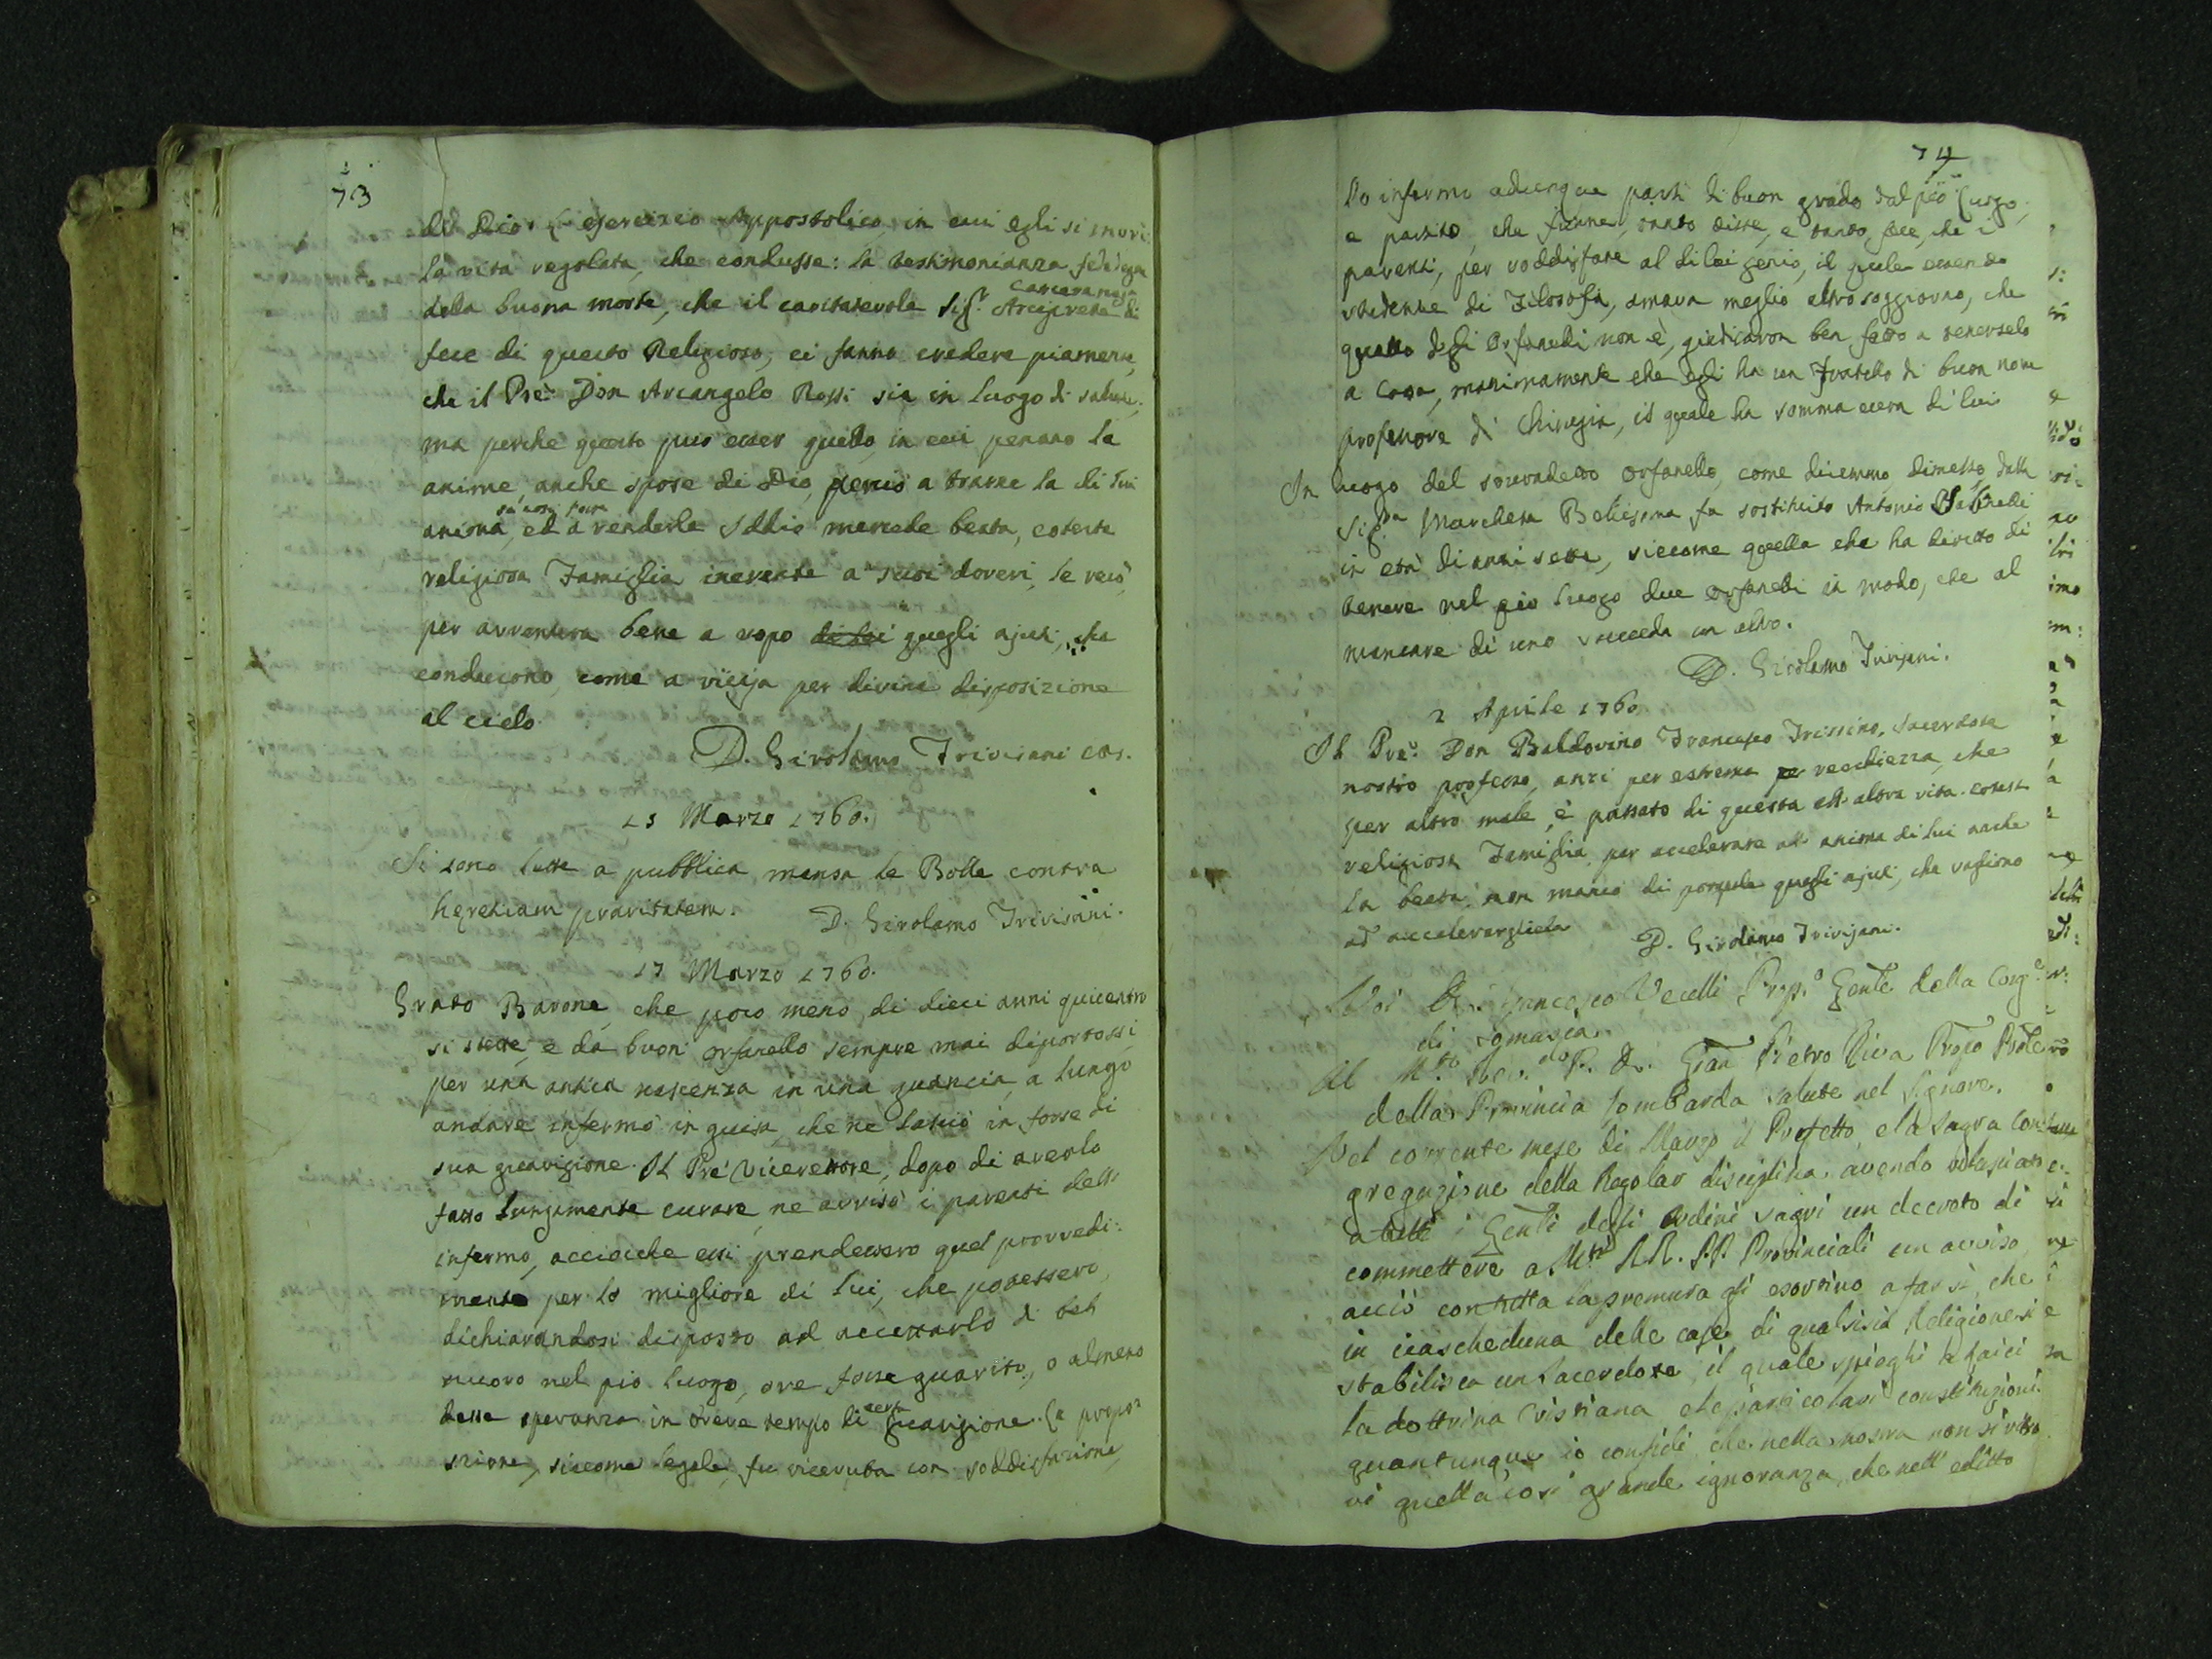 73
di Dio: l'esercizio Appostolico in cui egli si morì:
la vita regolata, che condusse: la testimonianza fededegna
della buona morte, che il caritatevole Sig.r Arciprete di
fece di questo Religioso, ci fanno credere piamente,
che il Pre. Don Arcangelo Rossi sia in luogo di salute;
ma perchè questo può esser quello, in cui penano le
anime, anche spose di Dio, perciò a trarne la di lui
anima, ed a renderle Iddio mercede beata, cotesta
religiosa Famiglia inerente a' suoi doveri, le recò,
per avventura bene a uopo di lui quegli ajuti, che
conducono, come a viija per divina disposizione
al cielo.
D. Girolamo Trivisani
15 Marzo 1760.
Si sono lette a pubblica mensa le Bolle contra
hereticam pravitatem. D. Girolamo Trivisani.
17 Marzo 1760.
Grato Barone, che poco meno di dieci anni quicentro
si stette, e da buon orfanello sempre mai diportossi,
per una antica nascenza in una guancia, a lungo
andare infermò in guisa, che ne lasciò in forse di
sua guarigione. Il Pre Vicerettore, dopo di averlo
fatto lungamente curare, ne avvisò i parenti dell'
infermo, acciocche essi prendessero quel provvedi:
mento per lo migliore di lui, che potessero,
dichiarandosi disposto ad accettarlo di bel
nuovo nel pio luogo, ove fosse guarito, o almeno
desse speranza in breve tempo di certa guarigione. La propo:
sizione, siccome legale, fu ricevuta con soddisfazione,
74
Lo infermo adunque partì di buon grado dal pio Luogo,
e partito, che funne, tanto disse, e tanto fece, che i
parenti, per soddisfare al di lui genio, il quale essendo
studente di Filosofia, amava meglio altro soggiorno, che
quello degli Orfanelli non è, giudicaron ben fatto a tenerselo
a Casa, massimamente che egli ha un Fratello di buon nome
professore di Chirugia, il quale ha somma cura di lui
In luogo del sovradetto Orfanello, come dicemmo, dimesso dalla
Sig.ra Marchesa Belisoma fu sostituito Antonio
in età di anni sette, siccome quella che ha diritto di
tenere nel pio Luogo due Orfanelli in modo, che al
mancare di uno succeda un altro.
D. Girolamo Trivisani.
2 Aprile 1760.
Il Pre. Don Baldovino Francesco Trissino, Sacerdote
nostro professo, anzi per estrema per vecchiezza, che
per altro male, è passato di questa all'altra vita. cotesta
religiosa Famiglia per accelerare all'anima di lui anche
la beata non mancò di porgerle quegli ajuti, che vagliono
ad accelerargliela
D. Girolamo Trivisani.
Noi D. Francesco Vecelli Prep.o Gen̄le della Cong.e
di Somasca.
Al M.to Rev.do P. D. Gian Pietro Riva Prepo Prōle
della Provincia Lombarda salute nel Signore.
Nel corrente mese di Marzo il Prefetto, e la Sagra Con
gregazione della Regolar disciplina avendo rilasciato
a tutti i Gen̄li degli Ordini sagri un decreto di
commettere a M.ti RR. PP. Provinciali un avviso,
acciò con tutta la premura gli esortino a far sì, che
in ciascheduna delle case di qualsisia Religione si
stabilisca un Sacerdote il quale spieghi a laici
la dottrina Cristiana, e le particolari constituzioni.
quantunque io confidi che nella nostra non si ritro
vi quella così grande ignoranza, che nell' editto